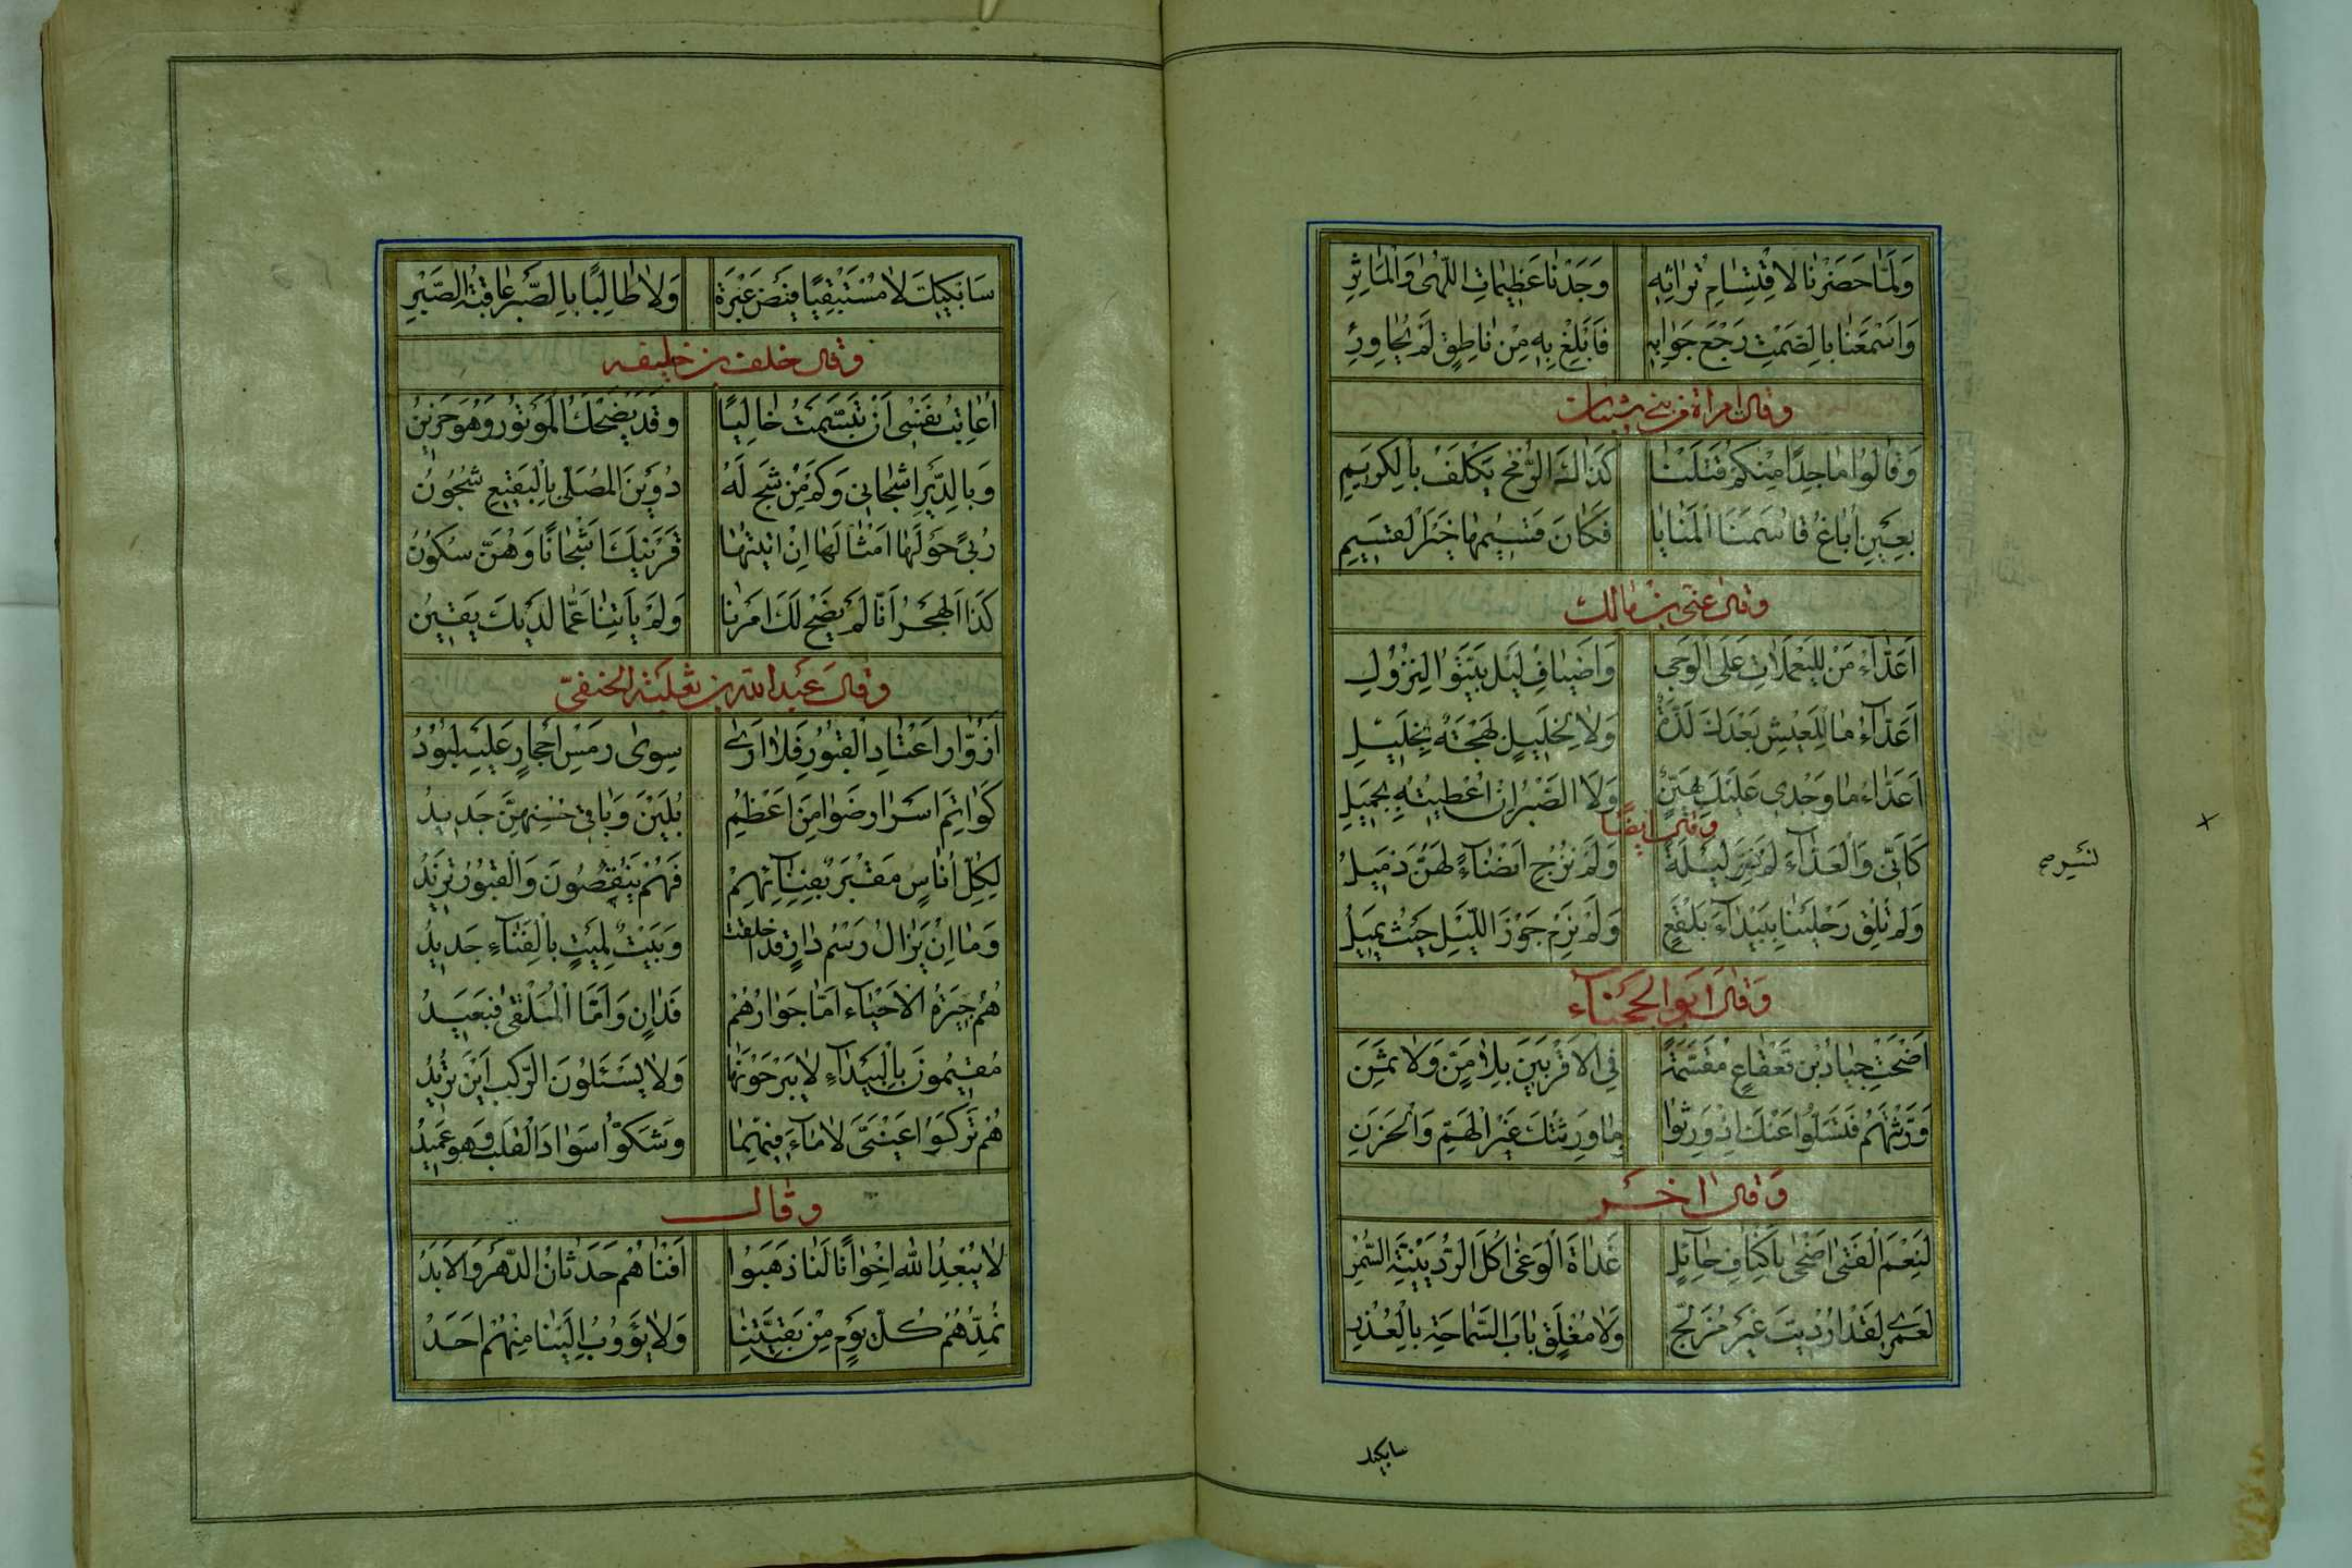 وَلَمَّا حَضَرْنَا لِاقْتِسَامِ تُرَاثِهِ وَجَدْنَا عَظِيمَاتِ اللُّهٰى وَالْمَآثِرِ
وَاَسْمَعَنَا بِالصَّمْتِ رَجْعَ جَوَابِهِ فَاَبْلِغْ بِهِ مِنْ نَاطِقٍ لَمْ يُحَاوِرِ
وقال امراة من بني شيبان
وَقَالُوا مَاجِدًا مِنْكُمْ قَتَلْنَا كَذَاكَ الرُّمْحُ يَكْلَفُ بِالْكَرِيمِ
بِعَيْنِ اُبَاغَ قَاسَمْنَا الْمَنَايَا فَكَانَ قَسِيمُهَا خَيْرَ الْقَسِيمِ
وقال عتى بن مالك
اَعَدَّاءُ مَنْ لِلْيَعْمَلَاتِ عَلَى الْوَجٰى وَاَضْيَافِ لَيْلٍ بَيَّتُوا لِنُزُولِ
اَعَدَّاءُ مَا لِلْعَيْشِ بَعْدَكَ لَذَّةٌ وَلَا لِخَلِيلٍ بَهْجَةٌ بِخَلِيلِ
اَعَدَّاءُ مَا وَجْدِي عَلَيْكَ بِهَيِّنٍ وَلَا الصَّبْرُ اِنْ اُعْطِيتُهُ بِجَمِيلِ
وقال ايضًا
كَاَنِّي وَالْعَدَّاءَ لَمْ نَسْرِ لَيْلَةً وَلَمْ نُزْجِ اَنْضَاءً لَهُنَّ ذَمِيلُ
وَلَمْ نُلْقِ رَحْلَيْنَا بِبَيْدَاءَ بَلْقَعٍ وَلَمْ نَرْمِ جَوْزَ اللَّيْلِ حَيْثُ يَمِيلُ
وَقَالَ اَبُو الحجناء
اَضْحَتْ جِيَادُ بْنِ قَعْقَاعٍ مُقَسَّمَةً فِي الْاَقْرَبِينَ بِلَا مَنٍّ وَلَا ثَمَنِ
وَرَّثْتَهُمْ فَتَسَلَّوْا عَنْكَ اِذْ وَرِثُوا وَمَا وَرِثْتُكَ غَيْرَ الْهَمِّ وَالْحَزَنِ
وَقَالَ اٰخَر
لَنِعْمَ الْفَتٰى اَضْحٰى بِاَكْنَافِ حَائِلٍ غَدَاةَ الْوَغٰى اُكُلَ الرُّدَيْنِيَّةِ السُّمْرِ
لَعَمْرِي لَقَدْ اَرْدَيْتَ غَيْرَ مُزَلَّجٍ وَلَا مُغْلِقٍ بَابَ السَّمَاحَةِ بِالْعُذْرِ
سابكيك
سَاَبْكِيكَ لَا مُسْتَبْقِيًا فَيْضَ عَبْرَةٍ وَلَا طَالِبًا بِالصَّبْرِ عَاقِبَةَ الصَّبْرِ
وقال خلف بن خليفه
اُعَاتِبُ نَفْسِي اَنْ تَبَسَّمْتُ خَالِيًا وَقَدْ يَضْحَكُ الْمَوْتُورُ وَهُوَ حَزِينُ
وَبِالدَّيْرِ اَشْجَانِي وَكَمْ مِنْ شَجٍ لَهُ دُوَيْنَ الْمُصَلَّى بِالْبَقِيعِ شُجُونُ
رُبًى حَوْلَهَا اَمْثَالُهَا اِنْ اَتَيْتَهَا قَرَيْنَكَ اَشْجَانًا وَهُنَّ سُكُونُ
كَذَا الْهَجْرُ اَنَّا لَمْ يَضِحْ لَكَ اَمْرُنَا وَلَمْ يَاْتِنَا عَمَّا لَدَيْكَ يَقِينُ
وقال عبد الله بن ثعلبة الحنفيّ
اَزُوَّارُ اَعْتَادِ الْقُبُورِ فَلَا اَرٰى سِوٰى رَمْسِ اَحْجَارٍ عَلَيْهِ لُبُودُ
كَوَاتِمَ اَسْرَارٍ ضَوَامِنَ اَعْظُمٍ بُلِينَ وَبَاقِي حُسْنِهِنَّ جَدِيدُ
لِكُلِّ اُنَاسٍ مَقْبَرٌ بِفِنَائِهِمْ فَهُمْ يَنْقُصُونَ وَالْقُبُورُ تَزِيدُ
وَمَا اِنْ يَزَالُ رَسْمُ دَارٍ قَدْ اَخْلَقَتْ وَبَيْتٌ لِمَيْتٍ بِالْفِنَاءِ جَدِيدُ
هُمُ جِيرَةُ الْاَحْيَاءِ اَمَّا جِوَارُهُمْ فَدَانٍ وَاَمَّا الْمُلْتَقٰى فَبَعِيدُ
مُقِيمُونَ بِالْبَيْدَاءِ لَا يَبْرَحُونَهَا وَلَا يَسْئَلُونَ الرَّكْبَ اَيْنَ تُرِيدُ
هُمُ تَرَكُوا عَيْنَيَّ لَا مَاءَ فِيهِمَا وَشَكُّوا سَوَادَ الْقَلْبِ فَهُوَ عَمِيدُ
وقال
لَا يُبْعِدِ اللهُ اِخْوَانًا لَنَا ذَهَبُوا اَفْنَاهُمُ حَدَثَانُ الدَّهْرِ وَالْاَبَدُ
نُمِدُّهُمُ كُلَّ يَوْمٍ مِنْ بَقِيَّتِنَا وَلَا يَؤُوبُ اِلَيْنَا مِنْهُمُ اَحَدُ